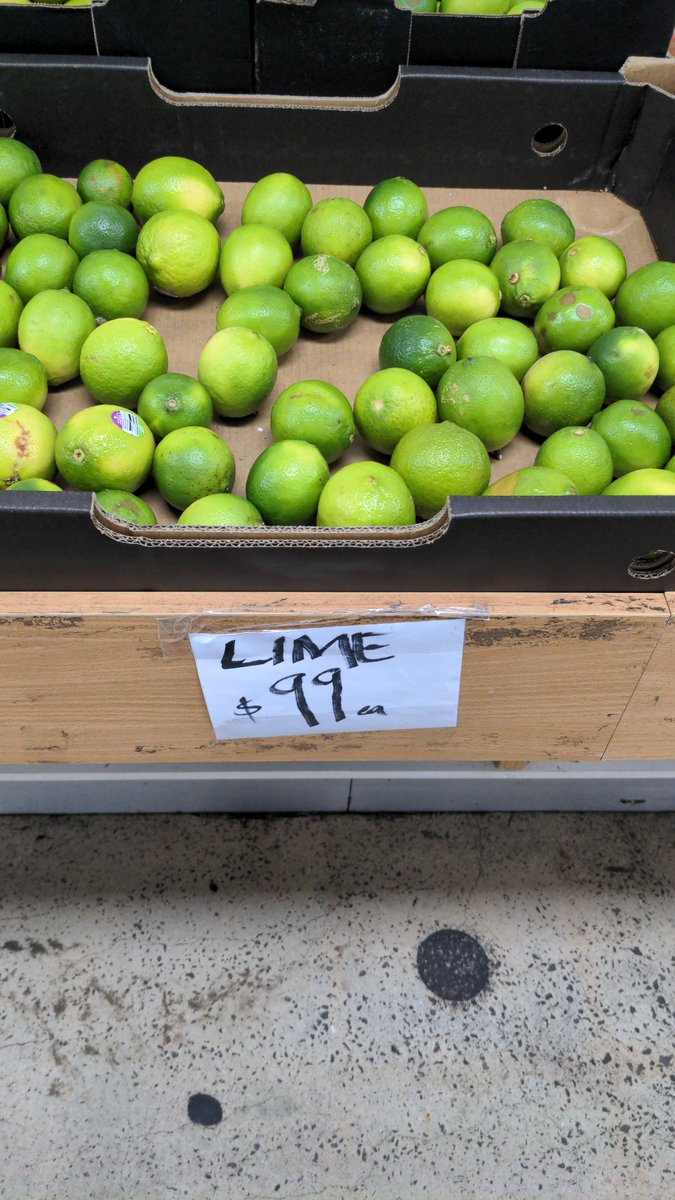 LIME
$ 99 ea